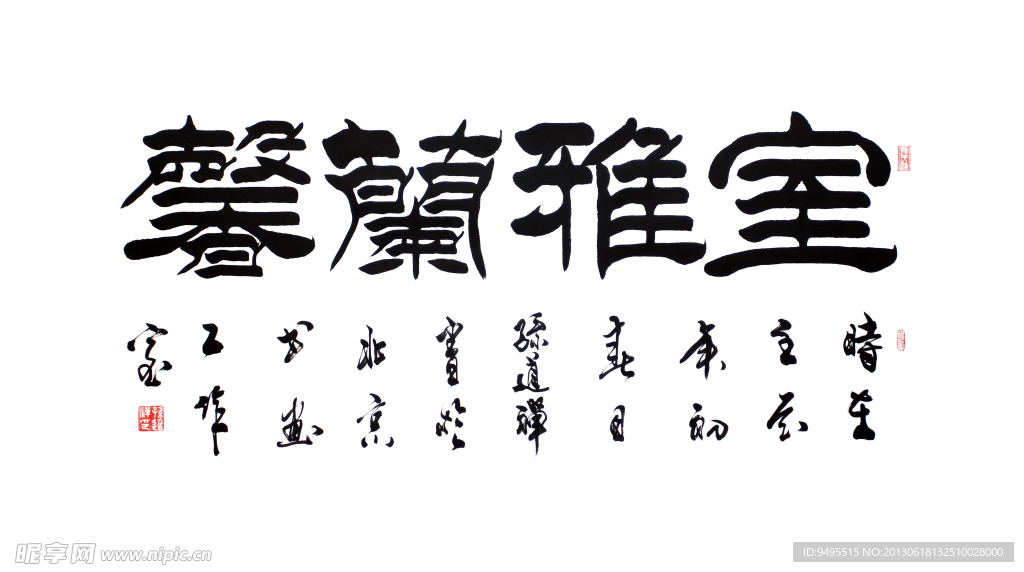 室雅蘭馨
時在
壬辰
年初
春月
孫道禪
書於
北京
书画
工作
室
昵享网 www.nipic.cn
ID:9495515 NO:20130618132510028000